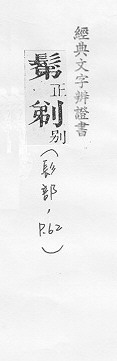 經典文字辨證書
鬀正
剃別
(髟部，P.62)